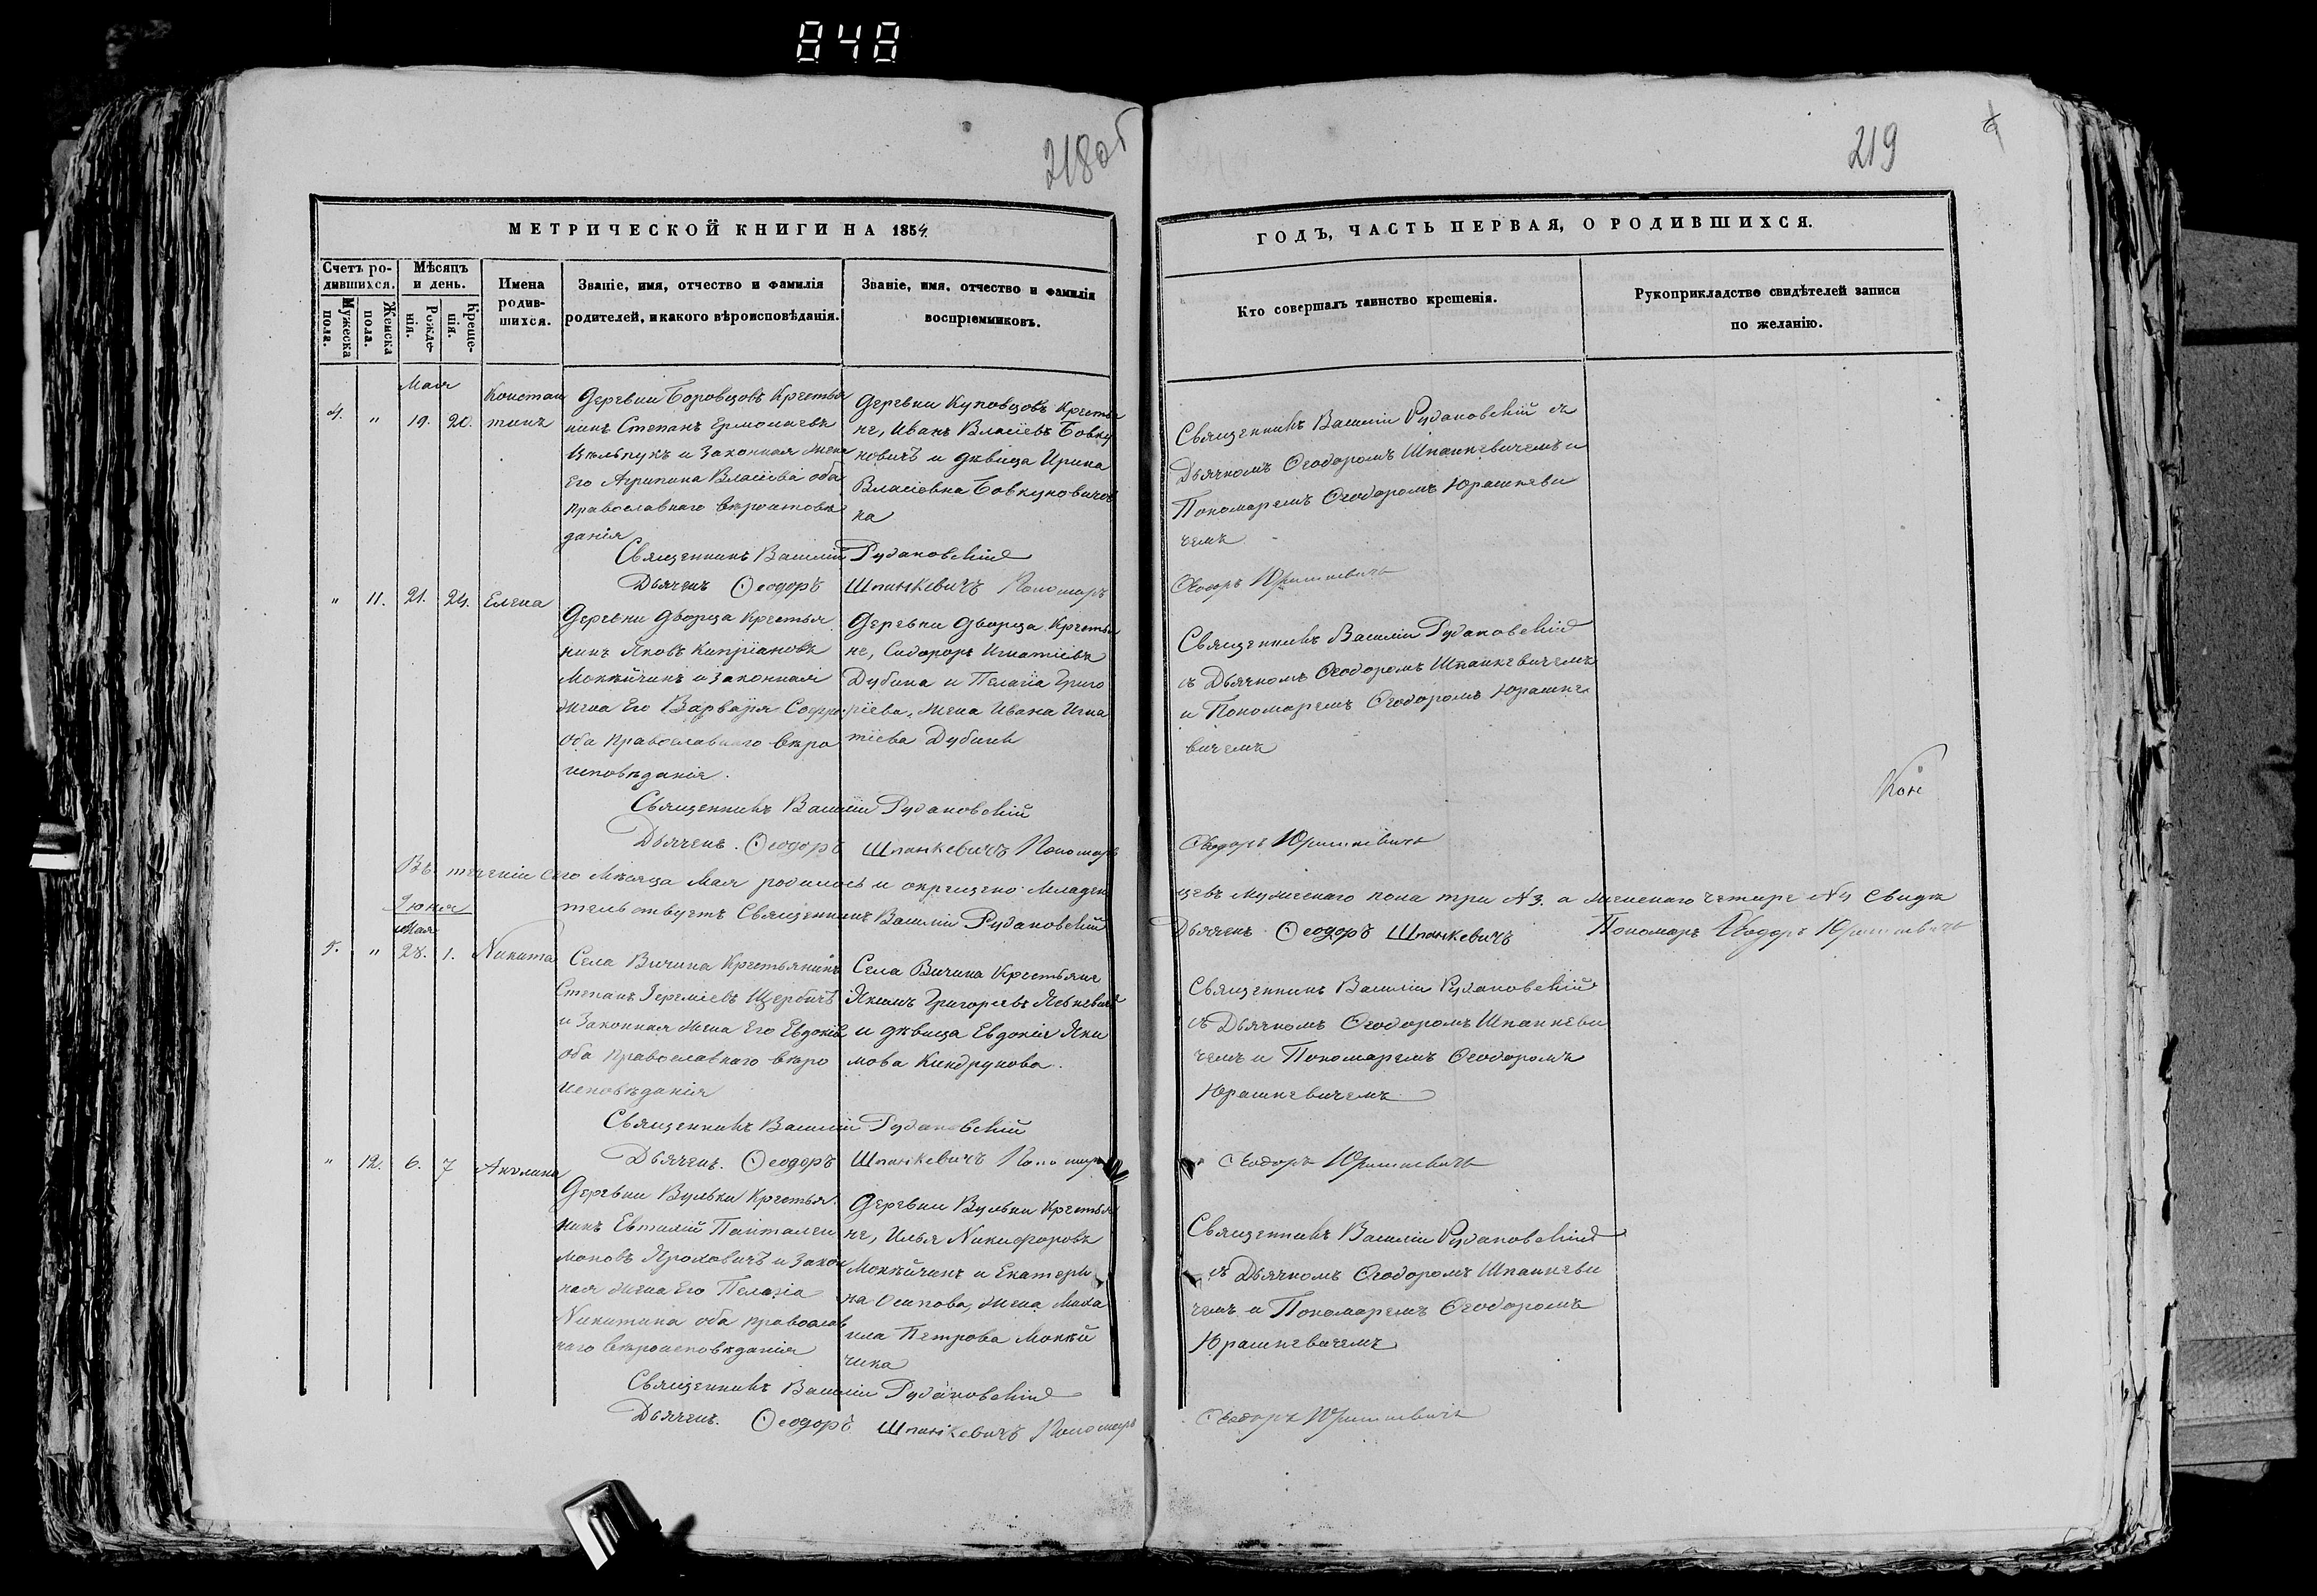 848
218 об
219
МЕТРИЧЕСКОЙ КНИГИ НА 1854.
ГОДЪ, ЧАСТЬ ПЕРВАЯ, О РОДИВШИХСЯ.
Счетъ родившихся.
Мужеска пола.
Женска пола.
Мѣсяцъ и день.
Рожденія.
Крещенія.
Имена родившихся.
Званіе, имя, отчество и фамилія
родителей, и какого вѣроисповѣданія.
Званіе, имя, отчество и фамилія
воспріемниковъ.
Кто совершалъ таинство крещенія.
Рукоприкладство свидѣтелей записи
по желанію.
Мая
4. " 19. 20.
Констан
тинъ
Деревни Боровцовъ Крестья
нинъ Степанъ Ермолаевъ
и Законная жена
Его Агрипина Власіева оба
православнаго вѣроисповѣ
данія
Деревни Куповцовъ Крестья
не, Иванъ Власіевъ Бовку
новичъ и дѣвица Ирина
Власіевна Бовкуновичов
на
Священникъ Василій Рудаковскій съ
Дьячкомъ Ѳеодоромъ Шпанкевичемъ и
Пономаремъ Ѳеодоромъ Юрашкеви
чемъ
Священникъ Василій Рудаковскій
Дьячекъ Ѳеодоръ Шпанкевичъ Пономарь
Ѳеодоръ Юрашкевичъ
" 11. 21. 24. Елена
Деревни Дворца Крестья
нинъ Яковъ Кипріановъ
Мокѣйчикъ и законная
жена Его Варвара Софро.
оба православнаго вѣро
исповѣданія.
Деревни Дворца Крестья
не, Сидоръ Игнатіевъ
Дубина и Пелагіа Григо
ріева, жена Ивана Игна
тіева Дубины
Священникъ Василій Рудаковскій
съ Дьячкомъ Ѳеодоромъ Шпанкевичемъ
и Пономаремъ Ѳеодоромъ Юрашке
вичемъ
Священникъ Василій Рудаковскій
Дьячекъ. Ѳеодоръ Шпанкевичъ Пономарь
Ѳеодоръ Юрашкевичъ
Въ теченіи сего Мѣсяца Мая родилось и окрещено Младен
цевъ мужескаго пола три №3. а женскаго четыре №4 Свидѣ
тельствуетъ Священникъ Василій Рудаковскій
Дьячекъ Ѳеодоръ Шпанкевичъ Пономарь Ѳеодоръ Юрашкевичъ
Іюня
Мая
5. " 28. 1. Никита
Села Вичина Крестьянинъ
Степанъ Іереміевъ Щербичъ
и Законная жена Его Евдокія
оба православнаго вѣро
исповѣданія
Села Вичина Крестьяне
Якимъ Григорьевъ
и дѣвица Евдокія Яки
мова Киндрукова.
Священникъ Василій Рудаковскій
съ Дьячкомъ Ѳеодоромъ Шпанкеви
чемъ и Пономаремъ Ѳеодоромъ
Юрашкевичемъ
Священникъ Василій Рудаковскій
Дьячекъ. Ѳеодоръ Шпанкевичъ Пономарь
Ѳеодоръ Юрашкевичъ
" 12. 6. 7 Акулина
Деревни Вульки Крестья
нинъ Евтихій Панталеи
моновъ Яроховичъ и Закон
ная жена Его Пелагіа
Никитина оба православ
наго вѣроисповѣданія
Деревни Вульки Крестья
не, Илья Никифоровъ
Мокѣйчикъ и Екатери
на Осипова, жена Миха
ила Петрова Мокѣй
чика
Священникъ Василій Рудаковскій
съ Дьячкомъ Ѳеодоромъ Шпанкеви
чемъ и Пономаремъ Ѳеодоромъ
Юрашкевичемъ
Священникъ Василій Рудаковскій
Дьячекъ. Ѳеодоръ Шпанкевичъ Пономарь
Ѳеодоръ Юрашкевичъ